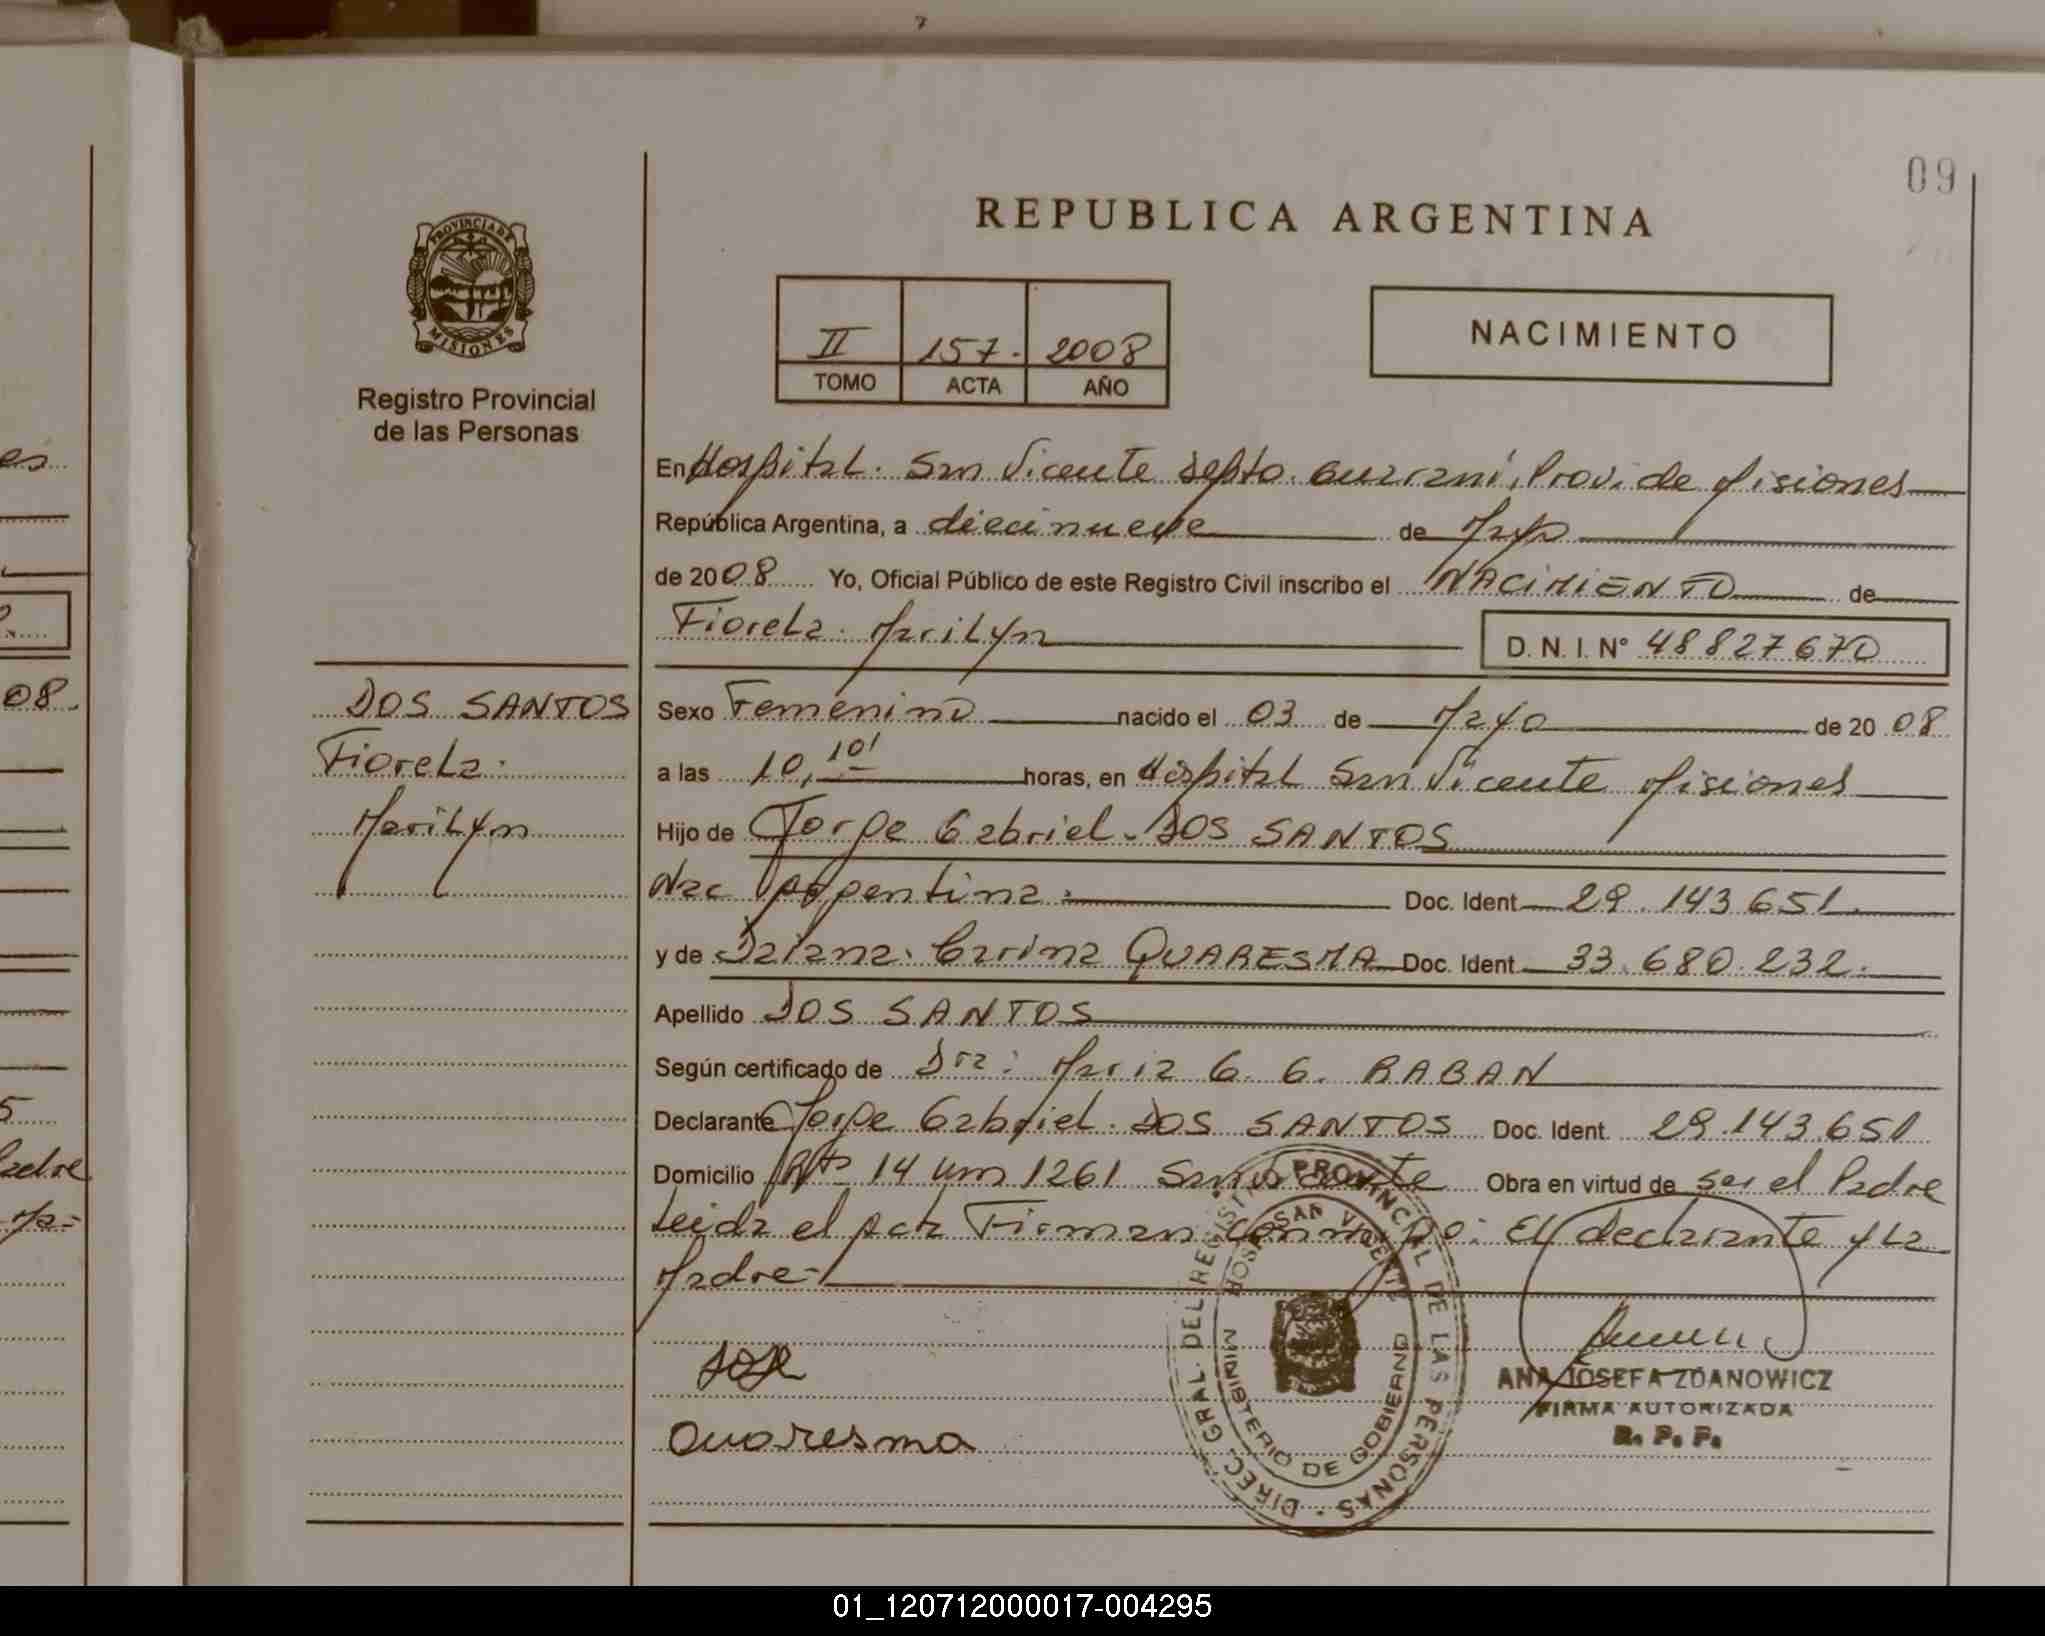 09
REPUBLICA ARGENTINA
PROVINCIA DE
MISIONES
Registro Provincial
de las Personas
II 157. 2008
TOMO ACTA AÑO
NACIMIENTO
En Hospital. San Vicente Depto. Guarani, Prov. de Misiones
República Argentina, a diecinueve de Mayo
de 2008 Yo, Oficial Público de este Registro Civil inscribo el NACIMIENTO de
Fiorela. Marilyn
D. N. I. N° 48827670
DOS SANTOS
Fiorela.
Marilyn
Sexo Femenino nacido el 03 de Mayo de 2008
a las 10,10' horas, en Hospital San Vicente Misiones
Hijo de Jorge Gabriel. DOS SANTOS
Nac Argentina. Doc. Ident 29.143.651.
y de Daiana. Carina QUARESMA Doc. Ident 33.680.232.
Apellido DOS SANTOS
Según certificado de Dra: Maria G. G. RABAN
Declarante Jorge Gabriel. DOS SANTOS Doc. Ident. 29.143.651
Domicilio Rta 14 km 1261 San Vicente Obra en virtud de ser el Padre
Leida el acta Firman conmigo: El declarante y La
Madre-
Quaresma
DIREC. GRAL. DEL REGISTRO PROVINCIAL DE LAS PERSONAS
HOSP. SAN VICENTE
MINISTERIO DE GOBIERNO
ANA JOSEFA ZDANOWICZ
FIRMA AUTORIZADA
R. P. P.
es
08.
5
Padre
01_120712000017-004295